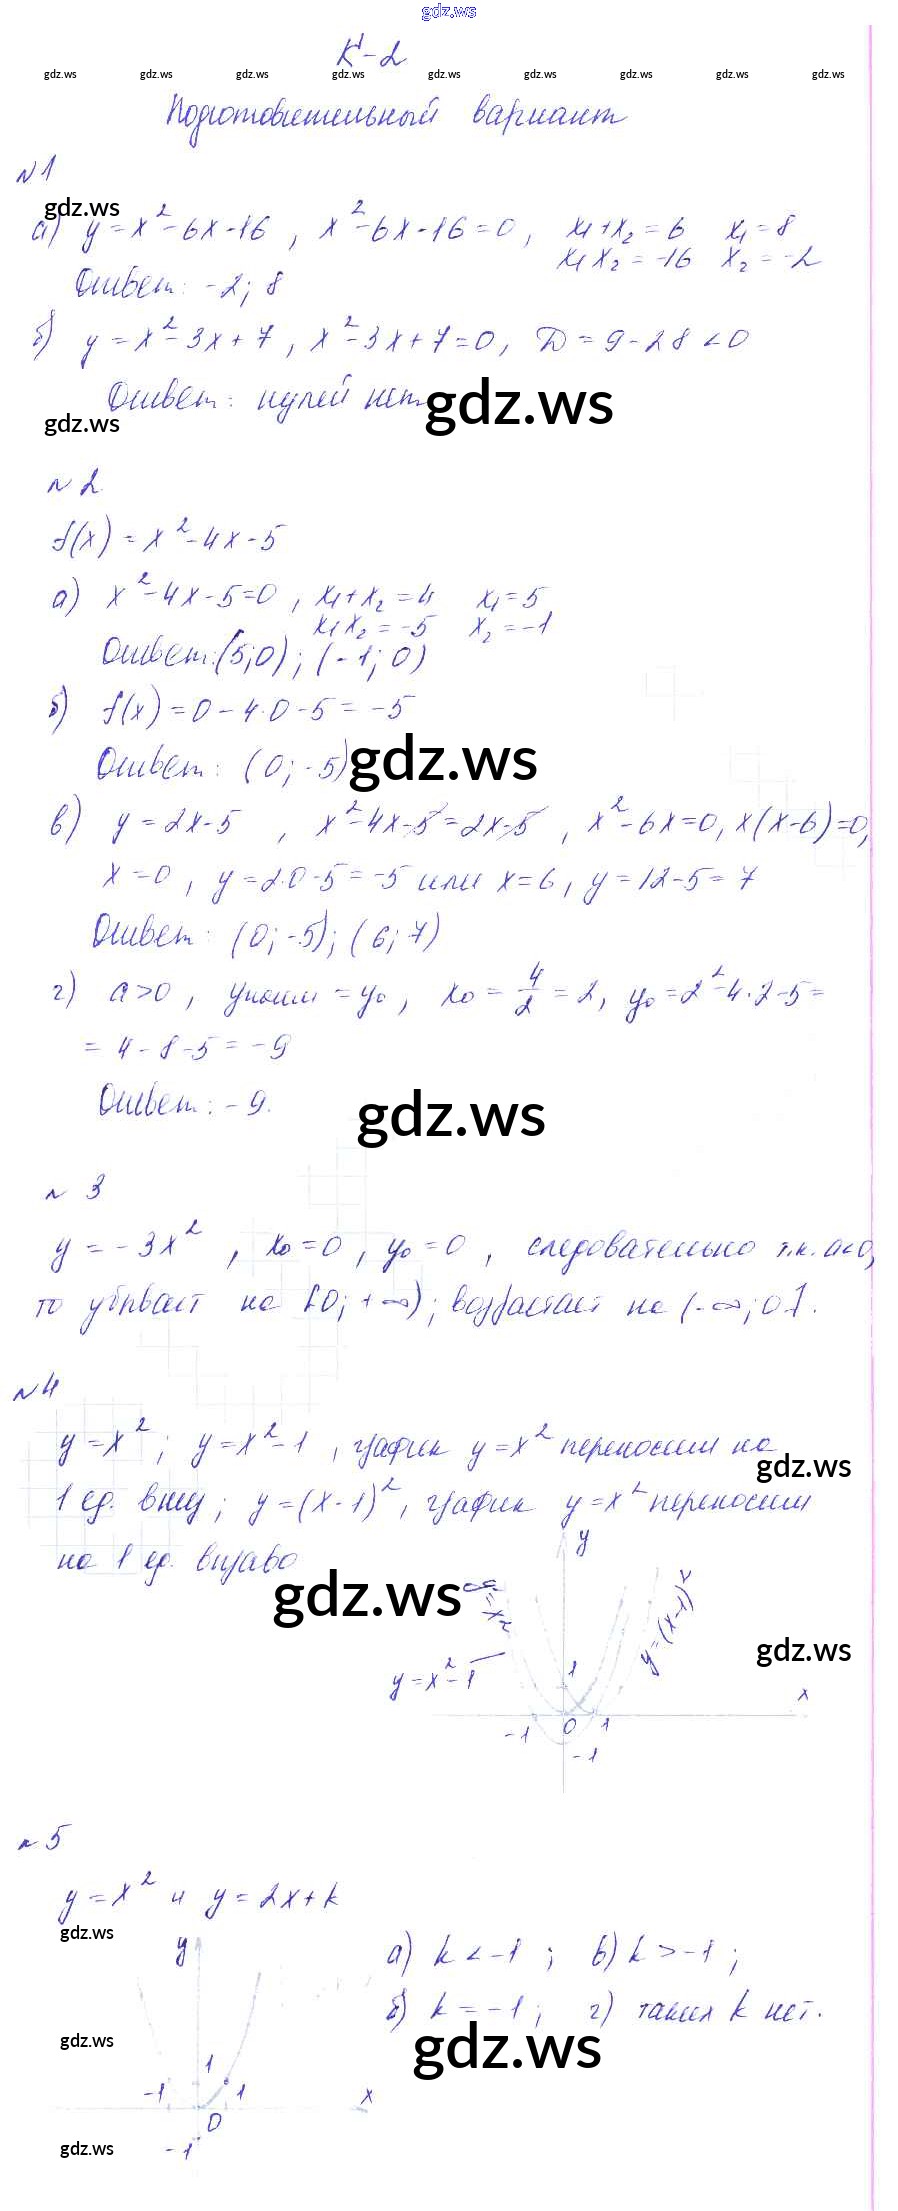 gdz.ws
К-2
gdz.ws gdz.ws gdz.ws gdz.ws gdz.ws gdz.ws gdz.ws gdz.ws gdz.ws
Подготовительный вариант
№1
gdz.ws
а) y = x² - 6x - 16 , x² - 6x - 16 = 0 , x₁ + x₂ = 6 x₁ = 8
x₁ x₂ = -16 x₂ = -2
Ответ: -2; 8
б) y = x² - 3x + 7 , x² - 3x + 7 = 0 , D = 9 - 28 < 0
Ответ: нулей нет
gdz.ws
gdz.ws
№ 2
f(x) = x² - 4x - 5
а) x² - 4x - 5 = 0 , x₁ + x₂ = 4 x₁ = 5
x₁ x₂ = -5 x₂ = -1
Ответ: (5; 0) ; (-1; 0)
б) f(x) = 0 - 4·0 - 5 = -5
Ответ: (0; -5)
gdz.ws
в) y = 2x - 5 , x² - 4x - 5 = 2x - 5 , x² - 6x = 0, x(x-6) = 0,
x = 0 , y = 2·0 - 5 = -5 или x = 6 , y = 12 - 5 = 7
Ответ: (0; -5); (6; 7)
г) a > 0 , yнаим = y₀ , x₀ = 4/2 = 2, y₀ = 2² - 4·2 - 5 =
= 4 - 8 - 5 = -9
Ответ: -9.
gdz.ws
№ 3
y = -3x² , x₀ = 0 , y₀ = 0 , следовательно т.к. a < 0,
то убывает на [0; +∞) ; возрастает на (-∞; 0].
№4
y = x² ; y = x² - 1 , график y = x² переносим на
gdz.ws
1 ед. вниз ; y = (x - 1)² , график y = x² переносим
на 1 ед. вправо
gdz.ws
y
y = x²
y = (x-1)²
gdz.ws
y = x² - 1
1
x
-1 0 1
-1
№5
y = x² и y = 2x + k
gdz.ws
y
а) k < -1 ; в) k > -1 ;
б) k = -1 ; г) таких k нет.
gdz.ws
gdz.ws
1
-1 1 x
0
-1
gdz.ws